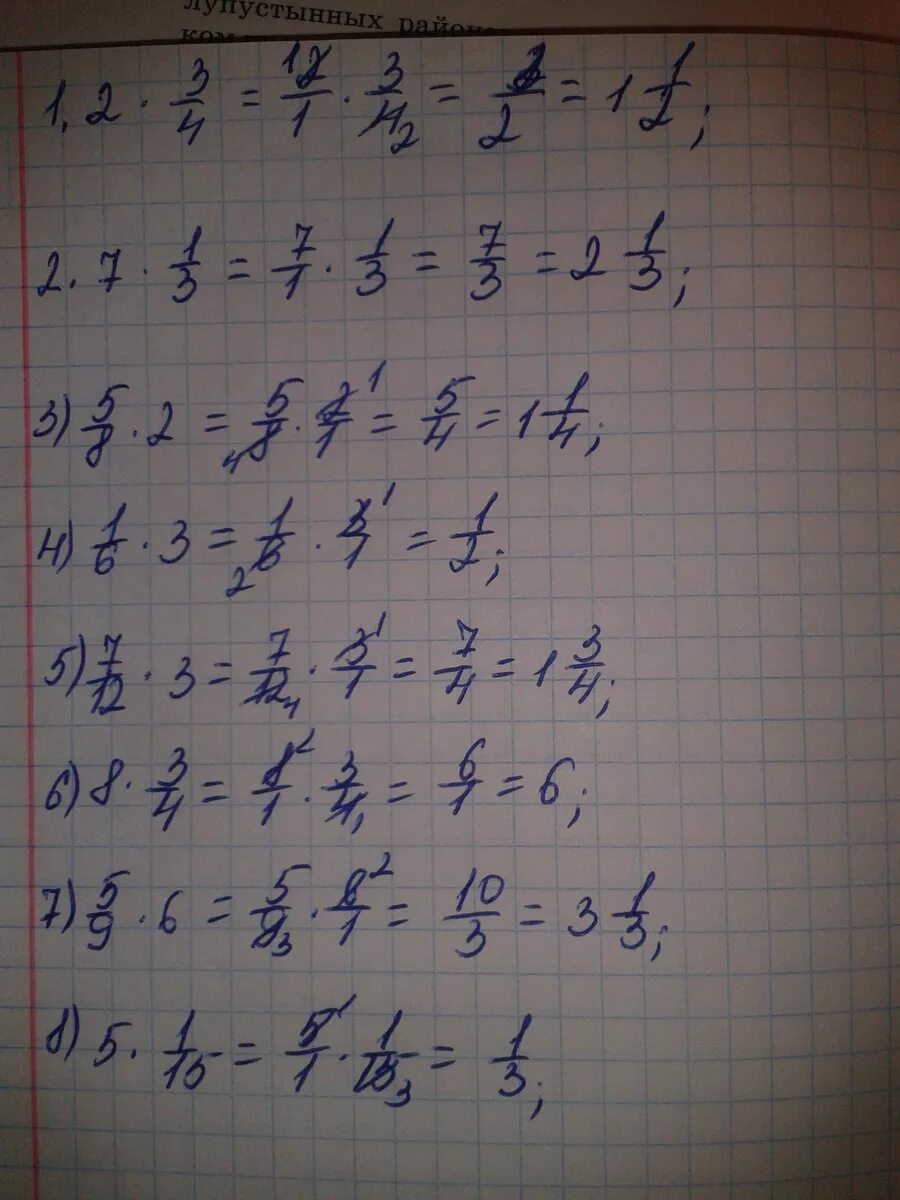 лупустынных район
ком
1, 2 · 3/4 = 2/1 · 3/4 = 3/2 = 1 1/2;
2. 7 · 1/3 = 7/1 · 1/3 = 7/3 = 2 1/3;
3) 5/8 · 2 = 5/8 · 2/1 = 5/4 = 1 1/4;
4) 1/6 · 3 = 1/6 · 3/1 = 1/2;
5) 7/12 · 3 = 7/12 · 3/1 = 7/4 = 1 3/4;
6) 8 · 3/4 = 8/1 · 3/4 = 6/1 = 6;
7) 5/9 · 6 = 5/9 · 6/1 = 10/3 = 3 1/3;
8) 5 · 1/15 = 5/1 · 1/15 = 1/3;